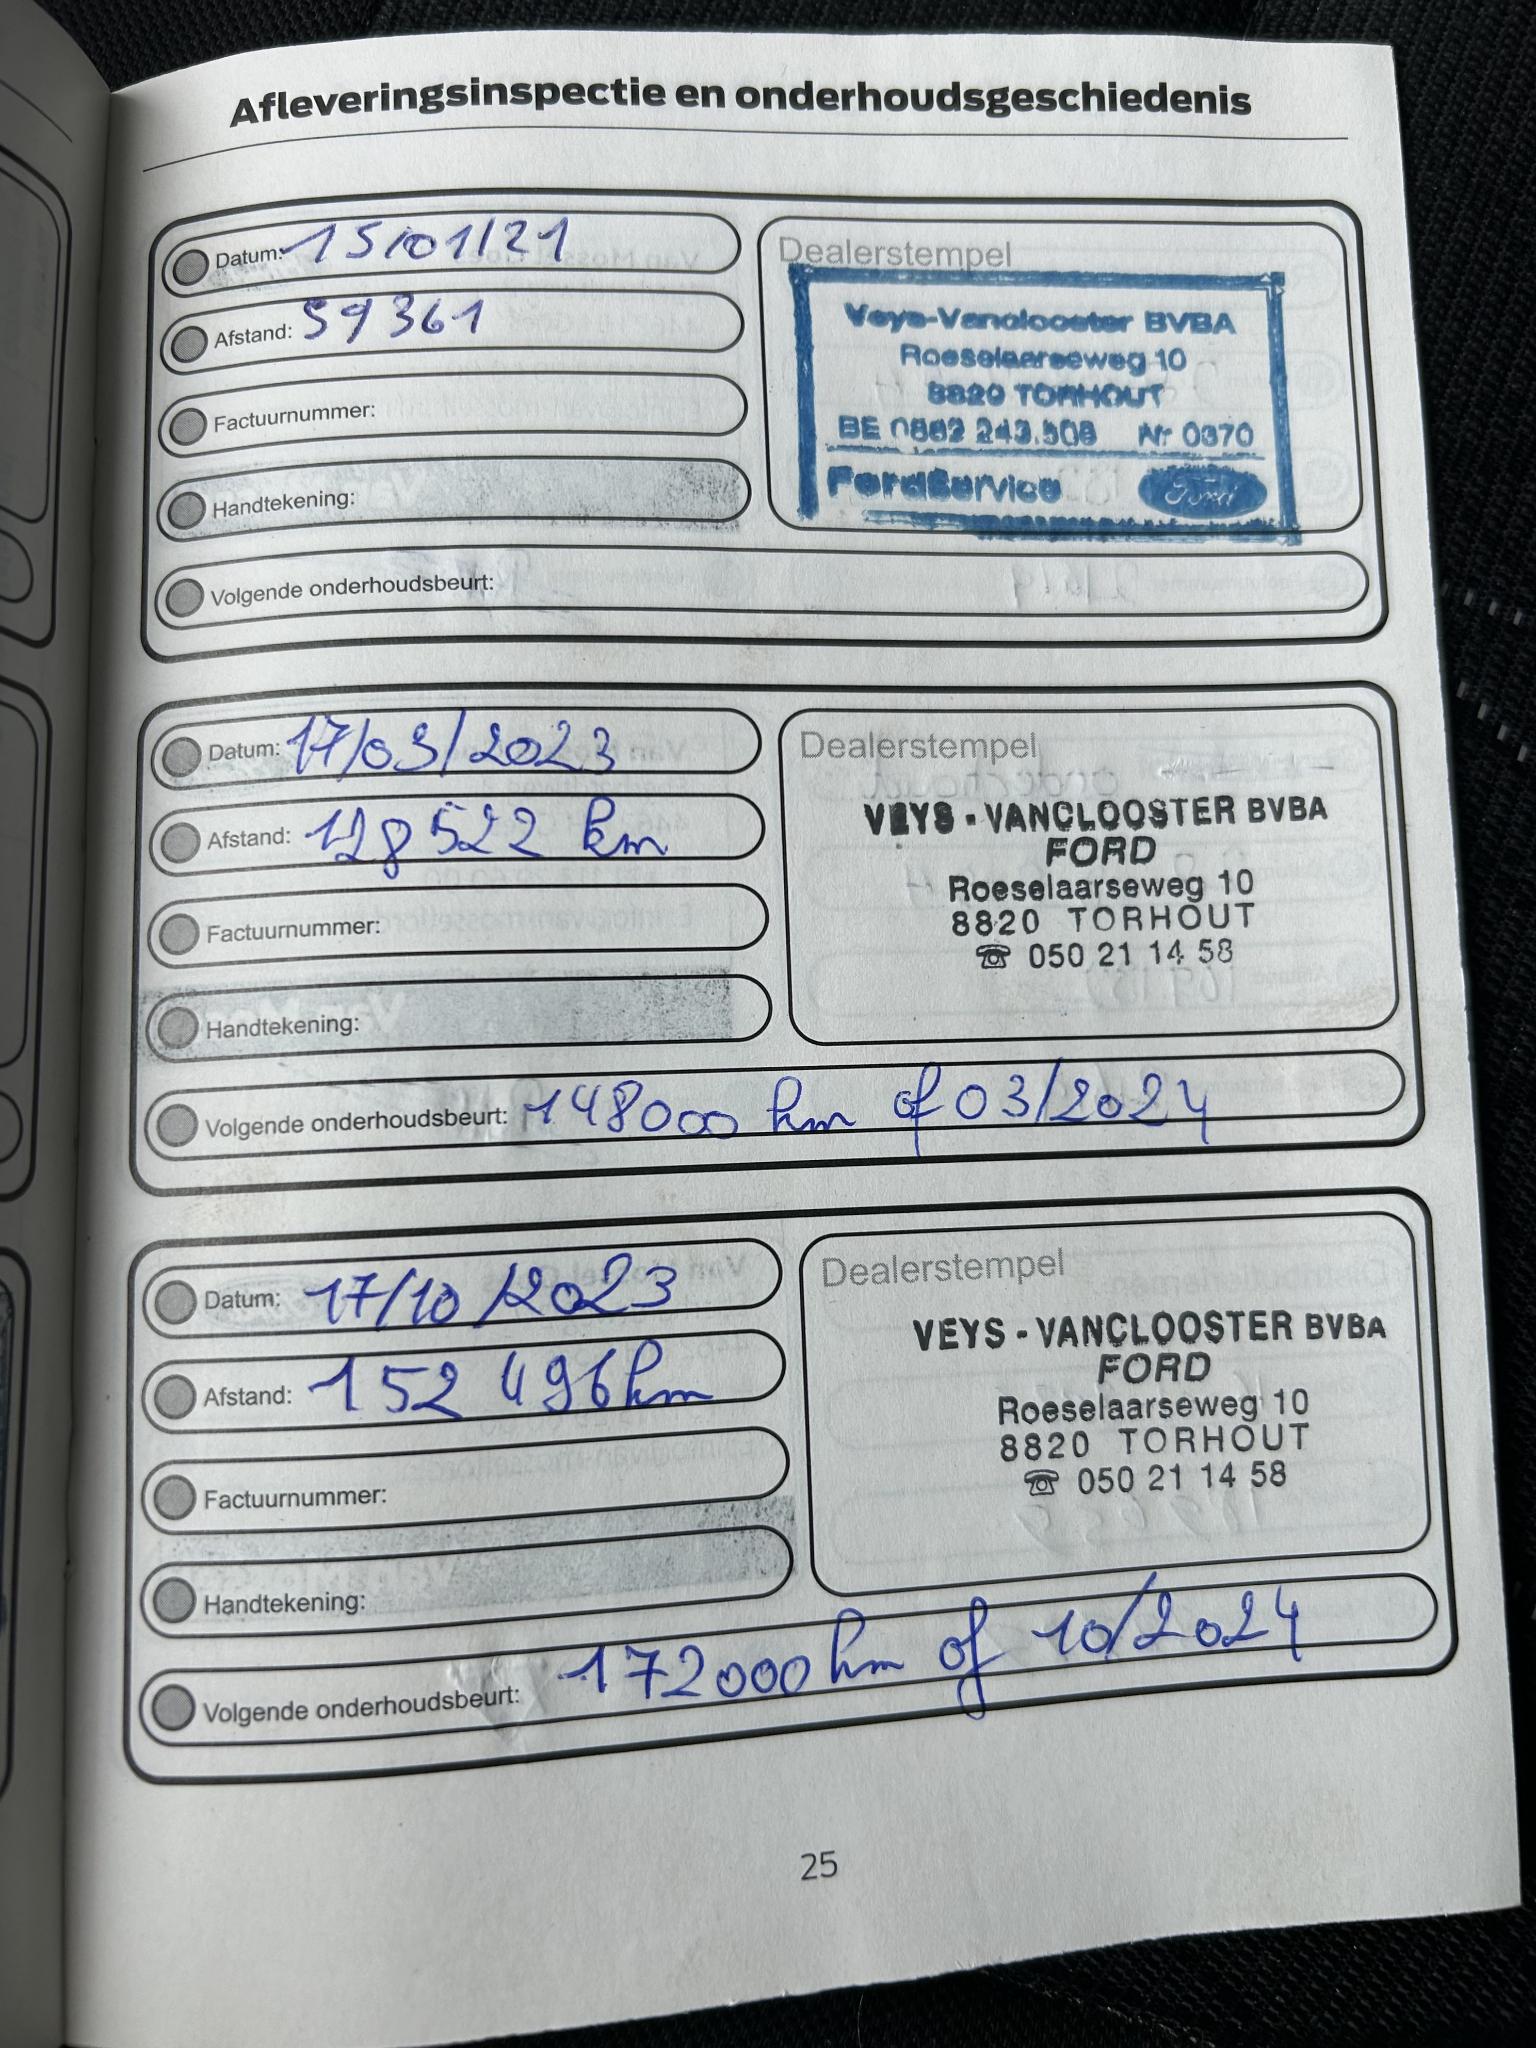 Afleveringsinspectie en onderhoudsgeschiedenis
Datum: 15/01/21
Afstand: 59361
Factuurnummer:
Handtekening:
Volgende onderhoudsbeurt:
Dealerstempel
Veys-Vanclooster BVBA
Roeselaarseweg 10
8820 TORHOUT
BE 0882 243.508 Nr 0370
FordService
Ford
Datum: 17/03/2023
Afstand: 128522 km
Factuurnummer:
Handtekening:
Volgende onderhoudsbeurt: 148000 km of 03/2024
Dealerstempel
VEYS - VANCLOOSTER BVBA
FORD
Roeselaarseweg 10
8820 TORHOUT
☎ 050 21 14 58
Datum: 17/10/2023
Afstand: 152 496 km
Factuurnummer:
Handtekening:
Volgende onderhoudsbeurt: 172000 km of 10/2024
Dealerstempel
VEYS - VANCLOOSTER BVBA
FORD
Roeselaarseweg 10
8820 TORHOUT
☎ 050 21 14 58
25